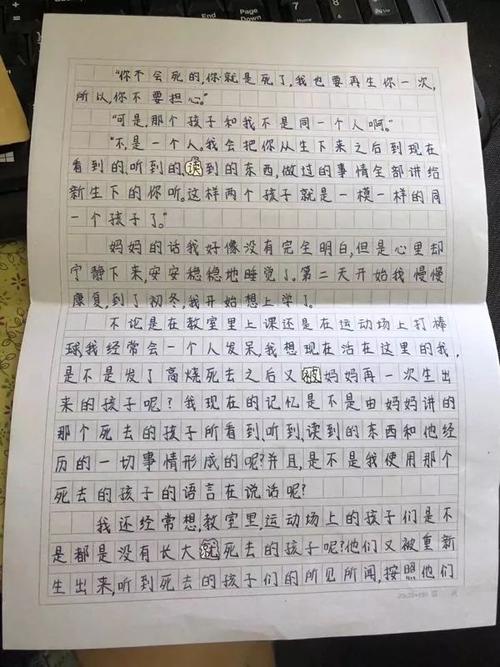 Page Down
End
"你不会死的,你就是死了,我也要再生你一次,
所以,你不要担心。"
"可是,那个孩子和我不是同一个人啊。"
"不,是一个人,我会把你从生下来之后到现在
看到的,听到的,读到的东西,做过的事情全部讲给
新生下的你听,这样两个孩子就是一模一样的同
一个孩子了。"
妈妈的话我好像没有完全明白,但是心里却
宁静下来,安安稳稳地睡觉了。第二天开始我慢慢
康复,到了初冬,我开始想上学了。
不论是在教室里上课还是在运动场上打棒
球,我经常会一个人发呆,我想现在活在这里的我,
是不是发了高烧死去之后又被妈妈再一次生出
来的孩子呢?我现在的记忆是不是由妈妈讲的
那个死去的孩子所看到,听到,读到的东西和他经
历的一切事情形成的呢?并且,是不是我使用那个
死去的孩子的语言在说话呢?
我还经常想,教室里,运动场上的孩子们是不
是都是没有长大就死去的孩子呢?他们又被重新
生出来,听到死去的孩子们的所见所闻,按照他们